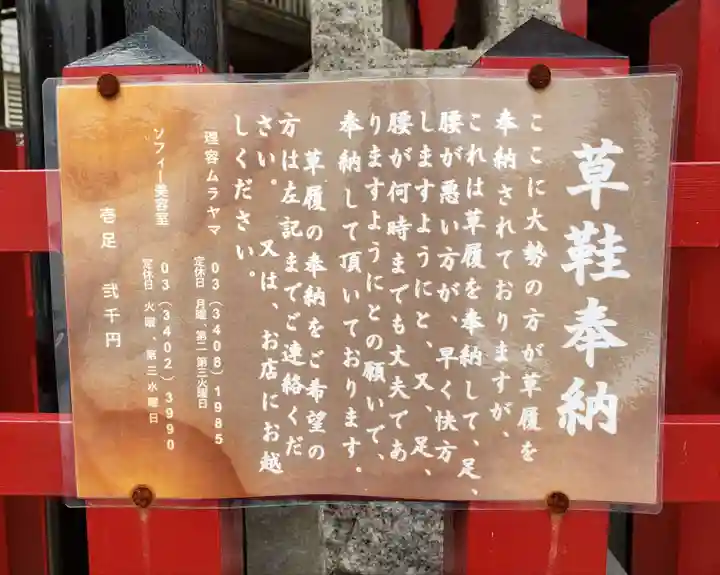 草鞋奉納
ここに大勢の方が草履を
奉納されておりますが、
これは草履を奉納して、足、
腰が悪い方が、早く快方
しますようにと、又、足、
腰が何時までも丈夫であ
りますようにとの願いで、
奉納して頂いております。
草履の奉納をご希望の
方は左記までご連絡くだ
さい。又は、お店にお越
しください。
理容ムラヤマ 03(3408)1985
定休日 月曜、第二第三火曜日
ソフィー美容室 03(3402)3990
定休日 火曜、第三水曜日
壱足 弐千円